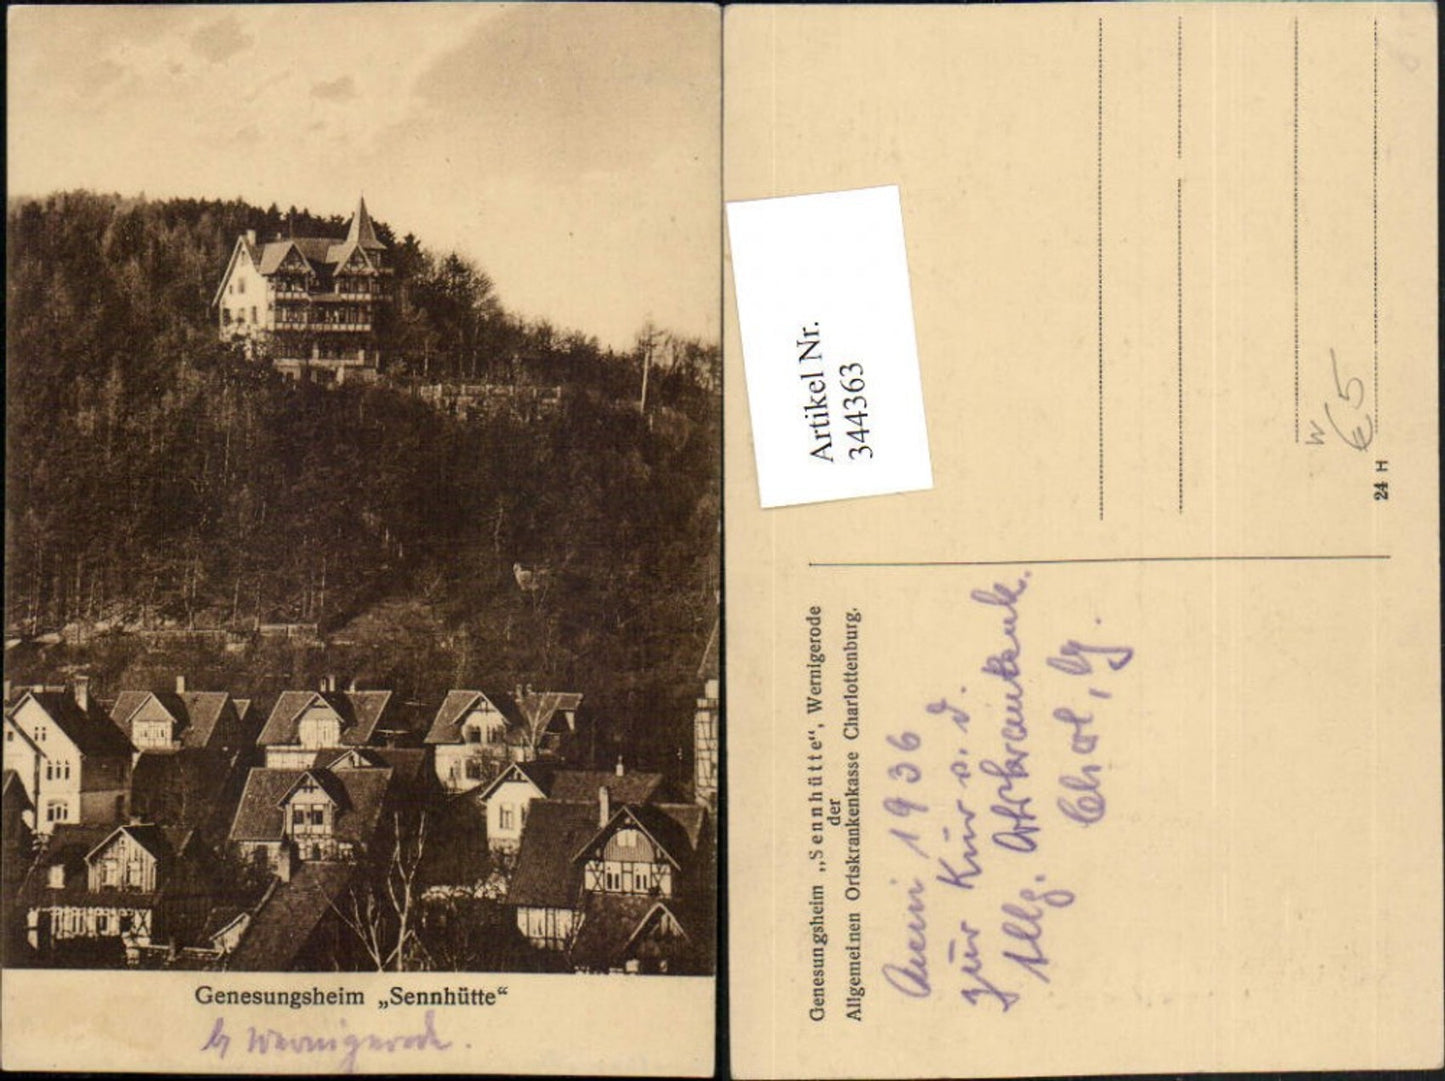 Genesungsheim „Sennhütte“
b/ Wernigerode.
Artikel Nr.
344363
Genesungsheim „Sennhütte“, Wernigerode
der
Allgemeinen Ortskrankenkasse Charlottenburg.
1936
zur Kur v. d.
Allg. Ortskrankenk.
Charl, bg.
W
€5
24 H